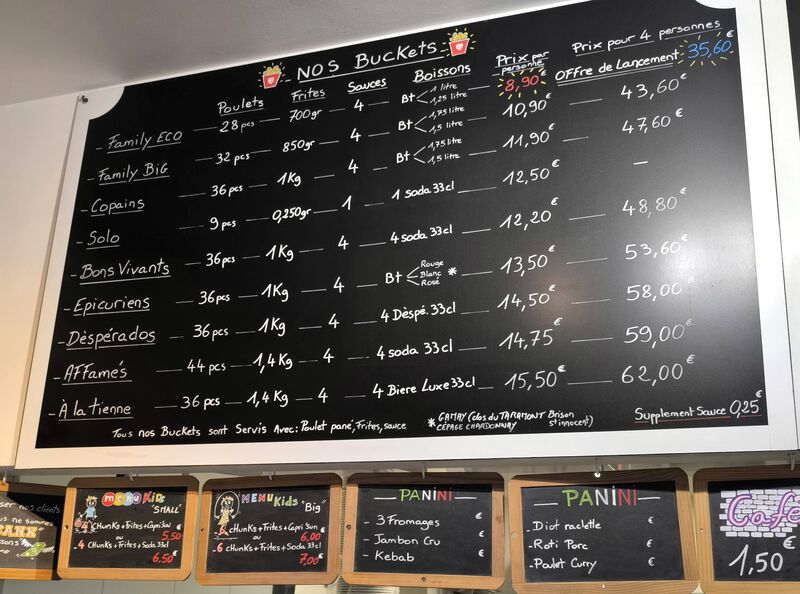 NOS BUCKETS
Poulets Frites Sauces Boissons Prix par personne Prix pour 4 personnes
OFFre de Lancement
- Family ECO — 28 pcs — 700gr — 4 — Bt < 1 litre 1,25 litre — 8,90€ — 35,60€
- Family BiG — 32 pcs — 850gr — 4 — Bt < 1,75 litre 1,5 litre — 10,90€ — 43,60€
- Copains — 36 pcs — 1Kg — 4 — Bt < 1,75 litre 1,5 litre — 11,90€ — 47,60€
- Solo — 9 pcs — 0,250gr — 1 — 1 soda 33cl — 12,50€ —
- Bons Vivants — 36 pcs — 1Kg — 4 — 4 soda 33cl — 12,20€ — 48,80€
- Epicuriens — 36 pcs — 1Kg — 4 — Bt < Rouge Blanc Rosé * — 13,50€ — 53,60€
- Dèspérados — 36 pcs — 1Kg — 4 — 4 Dèspé. 33cl — 14,50€ — 58,00€
- AFFamés — 44 pcs — 1,4Kg — 4 — 4 soda 33cl — 14,75€ — 59,00€
- À la tienne — 36 pcs — 1,4Kg — 4 — 4 Biere Luxe 33cl — 15,50€ — 62,00€
Tous nos Buckets sont Servis Avec: Poulet pané, Frites, sauce
* GAMAY (clos du TARAMONT Brison st innocent)
CÉPAGE CHARDONNAY
Supplement Sauce 0,25€
ser nos clients
MENU KIDS
"SMALL"
4 CHUNKS + Frites + Capri Sun
ou 5,50
4 CHUNKS + Frites + Soda 33cl
6,50€
MENU Kids "Big"
6 CHUNKS + Frites + Capri Sun
ou 6,00
6 CHUNKS + Frites + Soda 33cl
7,00€
PANINI
- 3 Fromages €
- Jambon Cru €
- Kebab €
PANINI
- Diot raclette €
- Roti Porc €
- Poulet Curry €
Café
1,50€